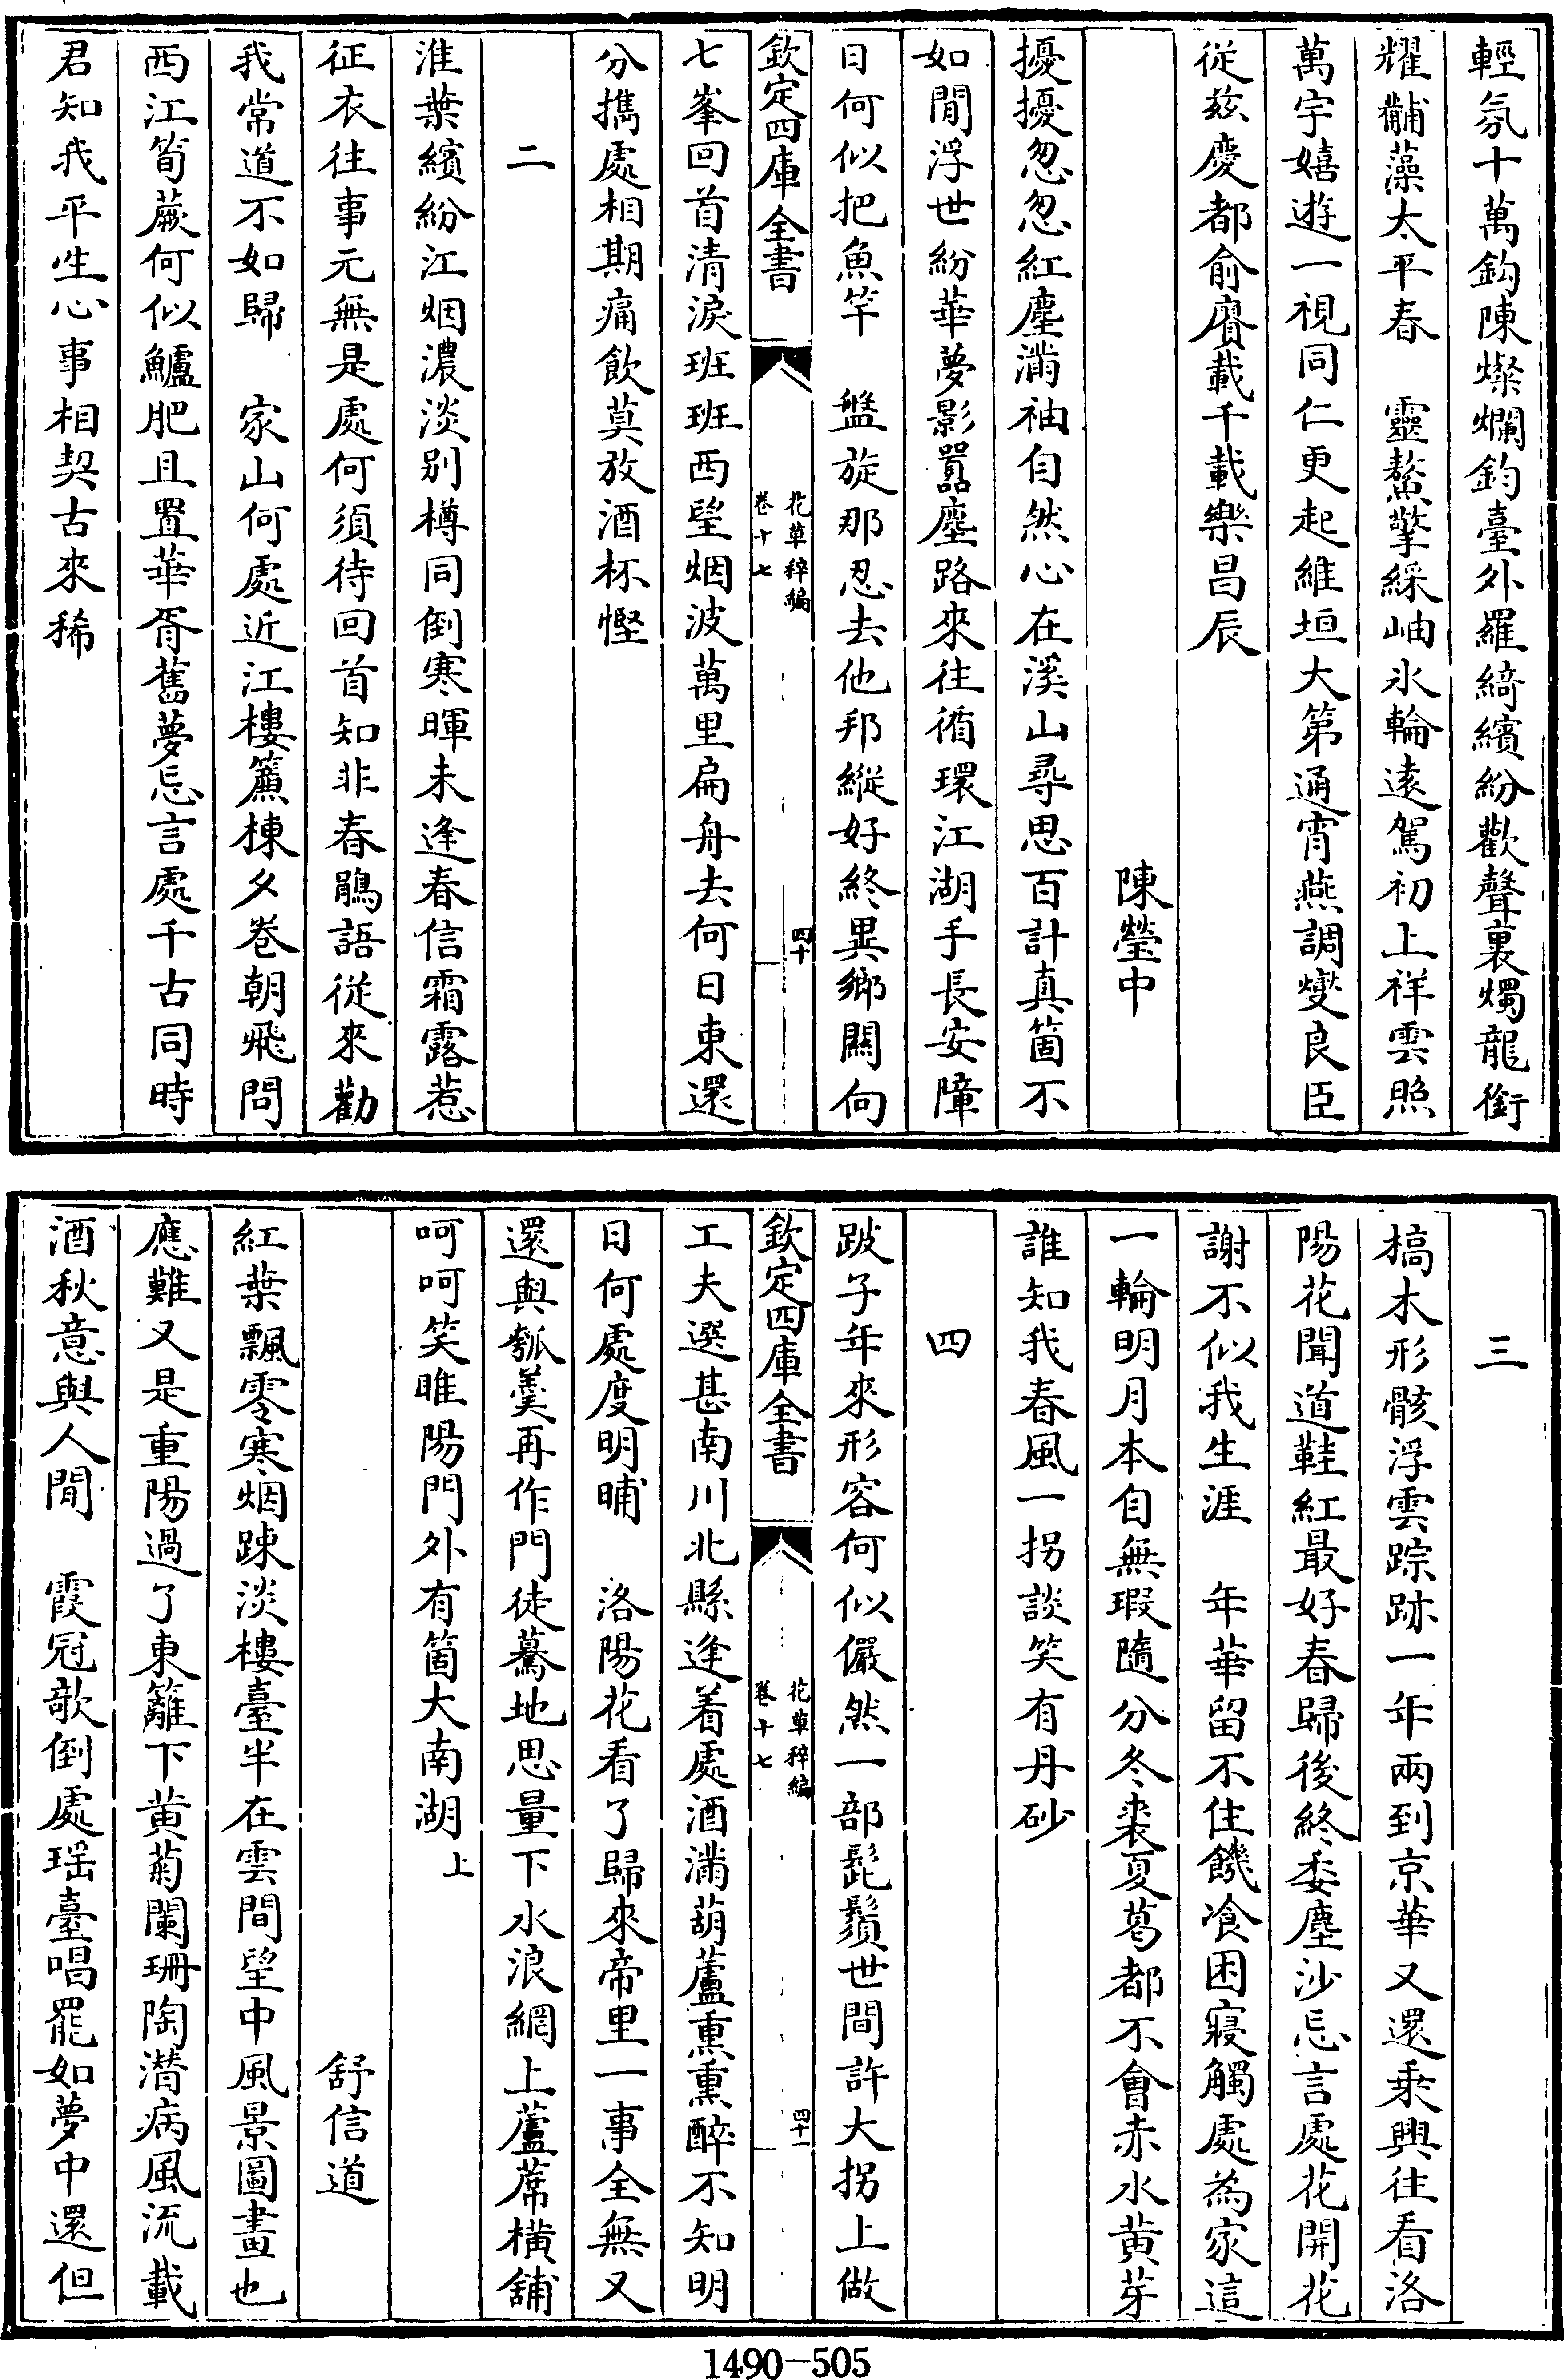 輕氛十萬鈎陳燦爛鈞臺外羅綺繽紛歡聲裏燭龍銜
耀黼藻太平春　靈鰲擎綵岫氷輪逺駕初上祥雲照
萬宇嬉遊一視同仁更起維垣大第通宵燕調燮良臣
從兹慶都俞賡載千載樂昌辰
陳瑩中
擾擾怱怱紅塵滿袖自然心在溪山尋思百計真箇不
如閒浮世紛華夢影囂塵路來往循環江湖手長安障
日何似把魚竿　盤旋那忍去他邦縱好終異鄉關向
欽定四庫全書
花草稡編
卷十七
四十
七峯回首清淚班班西望烟波萬里扁舟去何日東還
分携處相期痛飲莫放酒杯慳
二
淮葉繽紛江烟濃淡别樽同倒寒暉未逢春信霜露惹
征衣往事元無是處何須待回首知非春鵑語從來勸
我常道不如歸　家山何處近江樓簾棟夕卷朝飛問
西江筍蕨何似鱸肥且置華胥舊夢忘言處千古同時
君知我平生心事相契古來稀
三
槁木形骸浮雲踪跡一年兩到京華又還乘興往看洛
陽花聞道鞓紅最好春歸後終委塵沙忘言處花開花
謝不似我生涯　年華留不住饑飡困寢觸處為家這
一輪明月本自無瑕隨分冬裘夏葛都不會赤水黄芽
誰知我春風一拐談笑有丹砂
四
跛子年來形容何似儼然一部髭鬚世間許大拐上做
欽定四庫全書
花草稡編
卷十七
四十一
工夫選甚南川北縣逢着處酒滿葫蘆熏熏醉不知明
日何處度明晡　洛陽花看了歸來帝里一事全無又
還與瓠羮再作門徒驀地思量下水浪網上蘆蓆橫舖
呵呵笑睢陽門外有箇大南湖上
舒信道
紅葉飄零寒烟踈淡樓臺半在雲間望中風景圖畫也
應難又是重陽過了東籬下黄菊闌珊陶潛病風流載
酒秋意與人間　霞冠欹倒處瑶臺唱罷如夢中還但
1490-505